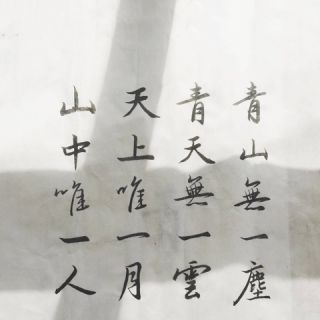 青山無一塵
青天無一雲
天上唯一月
山中唯一人